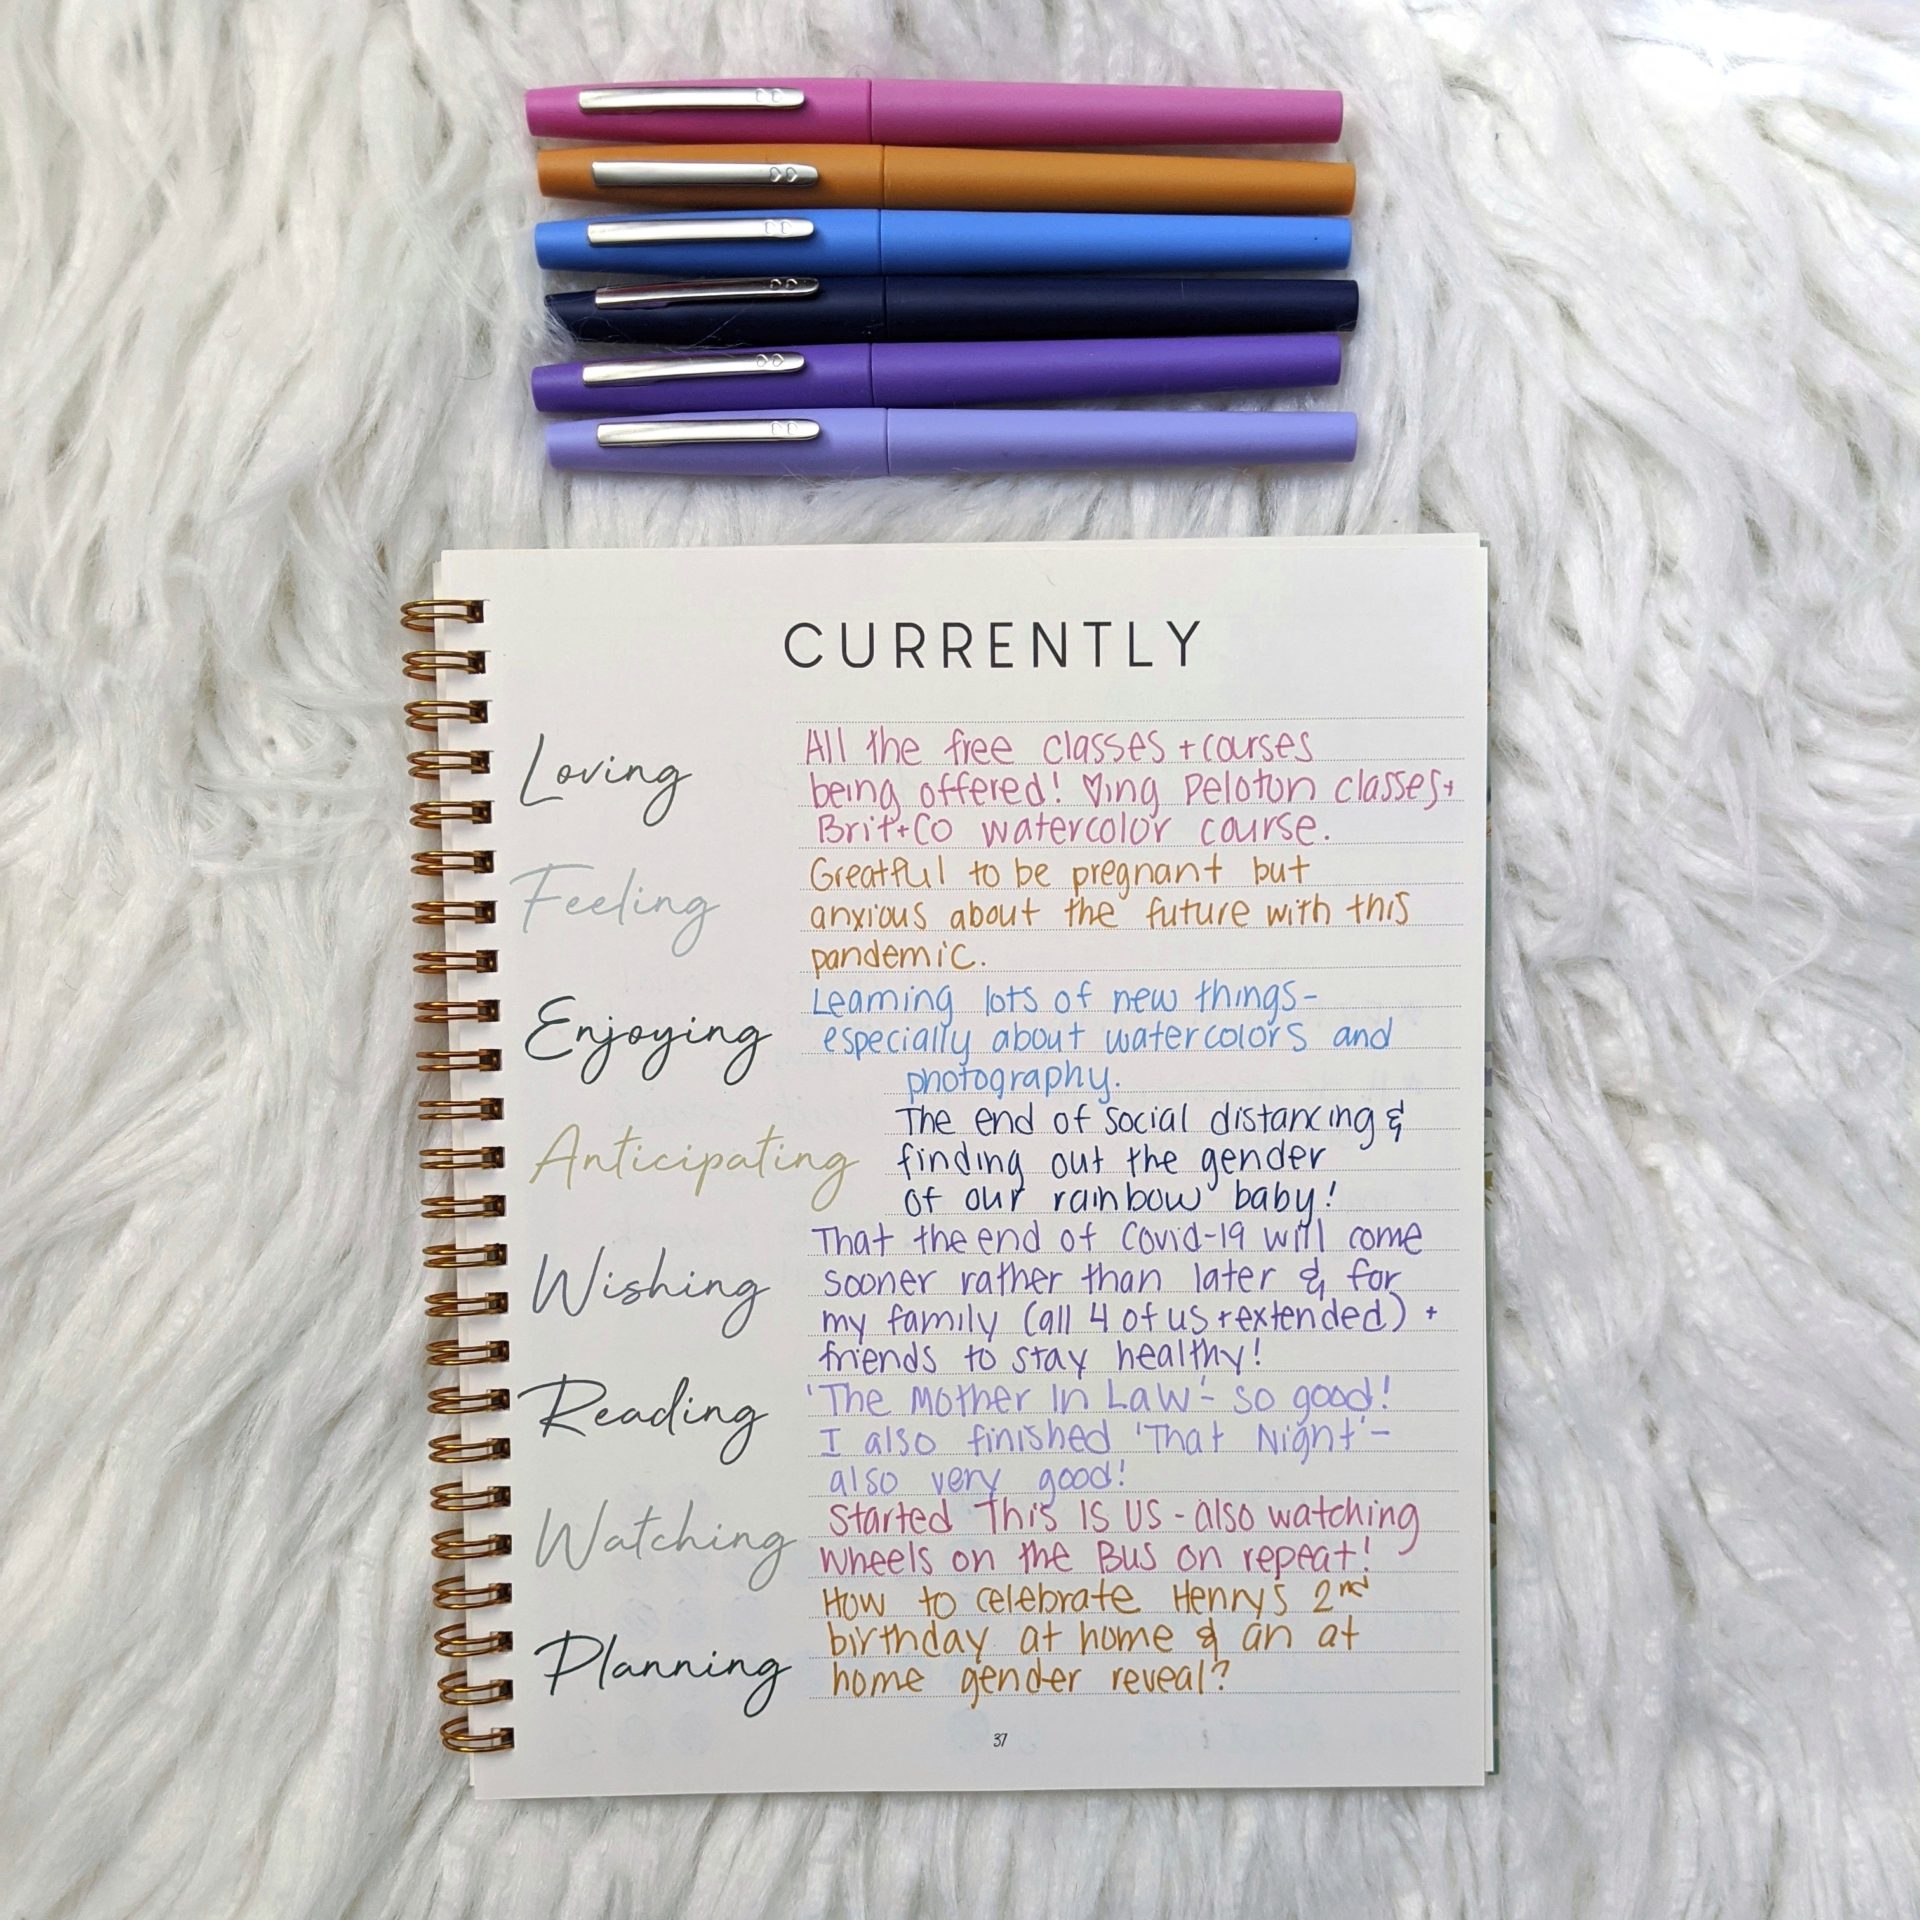 CURRENTLY
Loving
All the free classes + courses
being offered! ♡ing Peloton classes +
Brit + Co watercolor course.
Feeling
Greatful to be pregnant but
anxious about the future with this
pandemic.
Enjoying
Learning lots of new things-
especially about watercolors and
photography.
Anticipating
The end of social distancing &
finding out the gender
of our rainbow baby!
Wishing
That the end of Covid-19 will come
sooner rather than later & for
my family (all 4 of us + extended) +
friends to stay healthy!
Reading
'The Mother In Law' - so good!
I also finished 'That Night' -
also very good!
Watching
Started This Is Us - also watching
Wheels on the Bus on repeat!
Planning
How to celebrate Henrys 2nd
birthday at home & an at
home gender reveal?
37